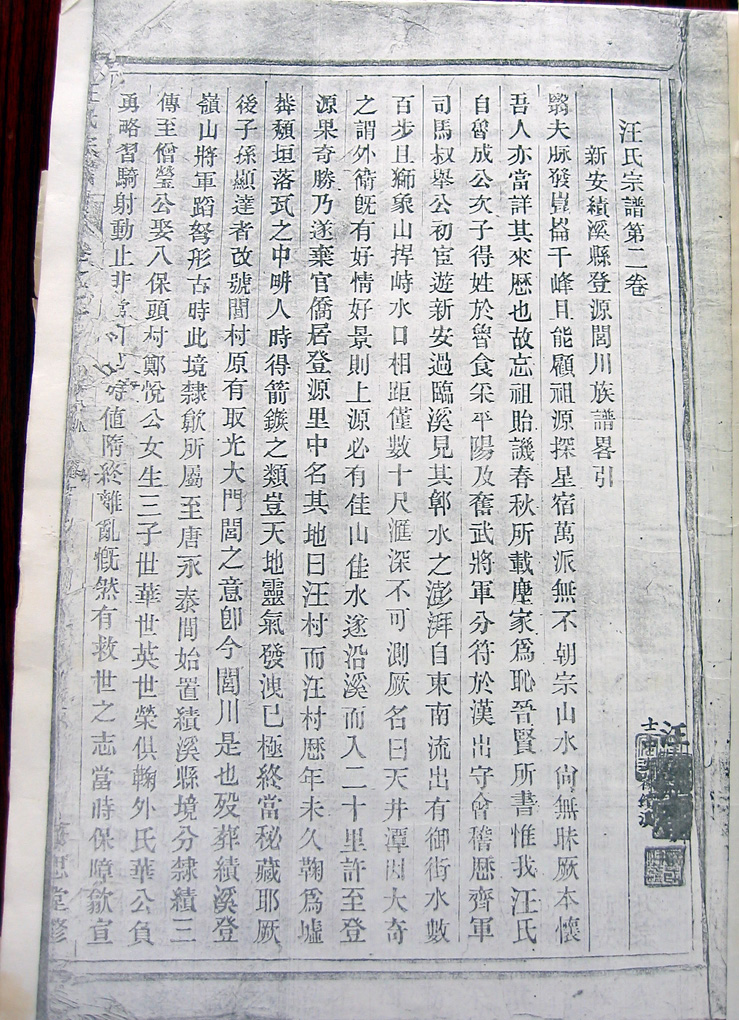 汪氏宗譜第二卷
新安績溪縣登源閭川族譜畧引
翳夫脉發崑崙千峰且能顧祖源探星宿萬派無不朝宗山水尚無昧厥本懷
吾人亦當詳其來歷也故忘祖貽譏春秋所載塵家爲恥晉賢所書惟我汪氏
自魯成公次子得姓於魯食采平陽及奮武將軍分符於漢出守會稽歷齊軍
司馬叔舉公初宦遊新安過臨溪見其郭水之澎湃自東南流出有御街水數
百步且獅象山捍峙水口相距僅數十尺滙深不可測厥名曰天井潭因大奇
之謂外衛旣有好情好景則上源必有佳山佳水遂沿溪而入二十里許至登
源果奇勝乃遂棄官僑居登源里中名其地曰汪村而汪村歷年未久鞠爲墟
莽頹垣落瓦之中畊人時得箭鏃之類豈天地靈氣發洩已極終當秘藏耶厥
後子孫顯達者改號閭村原有取光大門閭之意卽今閭川是也歿葬績溪登
嶺山將軍蹈弩形古時此境隸歙所屬至唐永泰間始置績溪縣境分隸績三
傳至僧瑩公娶八保頭村鄭悅公女生三子世華世英世榮俱鞠外氏華公負
勇略習騎射動止非常 時值隋終離亂慨然有救世之志當時保障歙宣
汪氏宗譜
思堂
汪
士